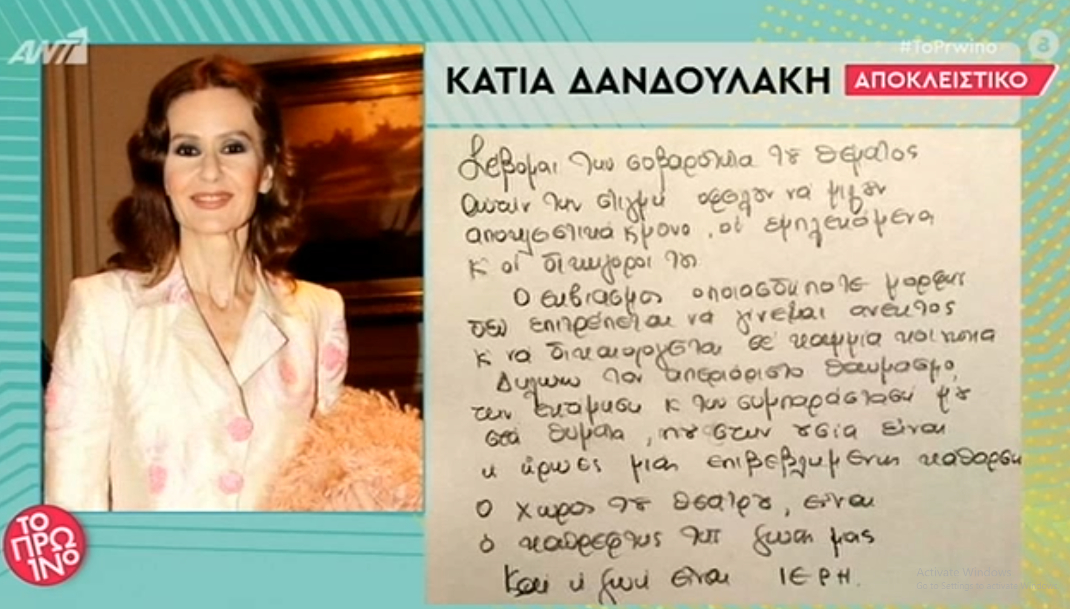 ANT1
#ToPrwino
8
ΚΑΤΙΑ ΔΑΝΔΟΥΛΑΚΗ ΑΠΟΚΛΕΙΣΤΙΚΟ
Σεβομαι την σοβαρότητα τȣ θεματος
Αυτήν την στιγμή οφειλουν να μιλουν
αποκλειστικά κ μονο, οι εμπλεκόμενοι
κ' οι δικηγοροι τȣς
Ο εκβιασμος οποιασδηποτε μορφης
δεν επιτρέπεται να γινεται ανεκτος
κ να δικαιολογειται σε καμμία κοινωνια
Δηλωνω τον απεριόριστο θαυμασμο,
την εκτίμηση κ την συμπαράσταση μȣ
στα θυματα, πȣ στην ȣσία είναι
κ ήρωες μιας επιβεβλημενης καθαρση
Ο χωρος τȣ θεατρȣ, είναι
ο καθρεφτης της ζωης μας
Και η ζωή είναι ΙΕΡΗ.
ΤΟ
ΠΡΩ
ΙΝΟ
Activate Windows